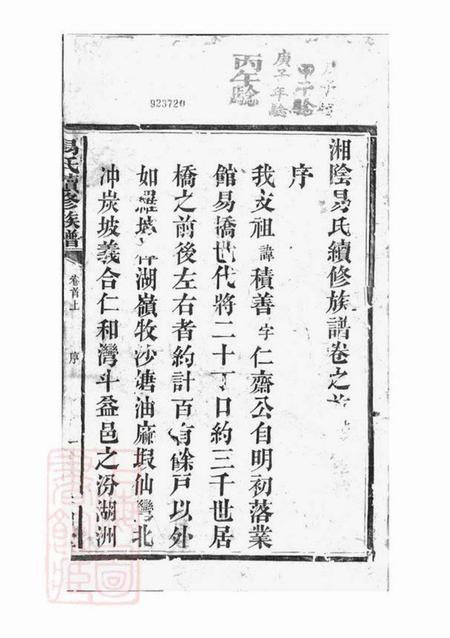 丙午驗
庚子年驗
甲子驗
923720
湘陰易氏續修族譜卷之首
序
我支祖諱積善字仁齋公自明初落業
館易橋世代將二十丁口約三千世居
橋之前後左右者約計百有餘戶以外
如羅城 湖嶺牧沙塘油麻塅仙灣北
冲炭坡義合仁和灣斗益邑之汾湖洲
易氏續修族譜
卷首上
序
一